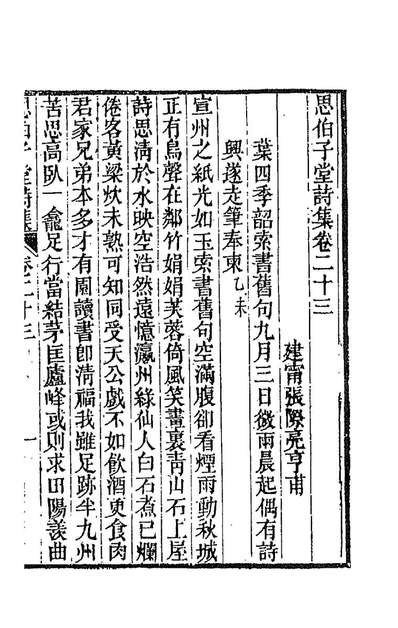 思伯子堂詩集卷二十三
建甯張際亮亨甫
葉四季韶索書舊句九月三日微雨晨起偶有詩
興遂走筆奉柬乙未
宣州之紙光如玉索書舊句空滿腹卻看煙雨動秋城
正有鳥聲在鄰竹娟娟芙蓉倚風笑畫裏靑山石上屋
詩思淸於水映空浩然遠憶瀛州綠仙人白石煮已爛
倦客黃粱炊未熟可知同受天公戲不如飲酒更食肉
君家兄弟本多才有園讀書卽淸福我雖足跡半九州
苦思高臥一龕足行當結茅匡廬峰或則求田陽羨曲
思伯子堂詩集
卷二十三
一